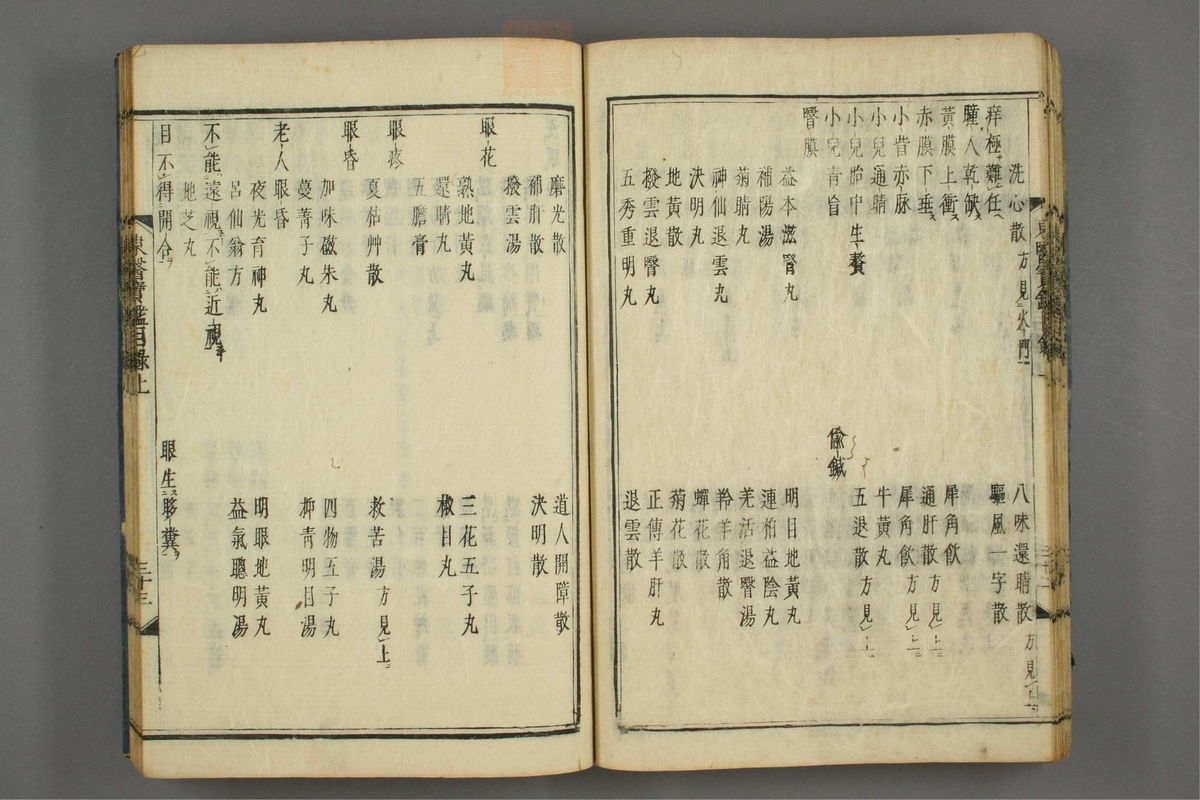 洗心散方見火門 八味還睛散方見上
痒極難任 驅風一字散
瞳人乾缺 犀角飲
黃膜上衝 通肝散方見上
赤膜下垂 犀角飲方見上
小眥赤脉 牛黃丸
小兒通睛 五退散方見上
小兒胎中生贅
小兒青盲 偸鍼
瞖膜
益本滋腎丸 明目地黃丸
補陽湯 連柏益陰丸
菊睛丸 羌活退瞖湯
神仙退雲丸 羚羊角散
決明丸 蟬花散
地黃散 菊花散
撥雲退瞖丸 正傳羊肝丸
五秀重明丸 退雲散
磨光散 道人開障散
補肝散 決明散
撥雲湯
眼花
熟地黃丸 三花五子丸
還睛丸 椒目丸
五膽膏
眼疼
夏枯艸散 救苦湯方見上
眼昏
加味磁朱丸 四物五子丸
蔓菁子丸 抑青明目湯
老人眼昏
夜光育神丸 明眼地黃丸
呂仙翁方 益氣聰明湯
不能遠視不能近視
地芝丸
目不得開合 眼生眵糞
東醫寶鑑目錄上 三十三